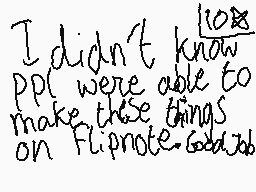 10※
I didn't know
ppl were able to
make these things
on Flipnote. Good Job